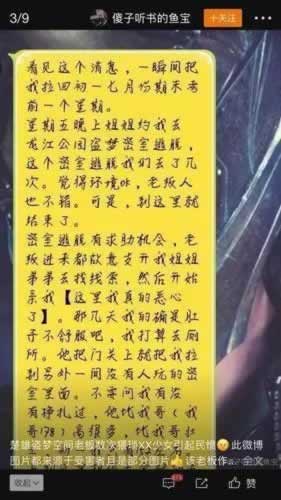 3/9
傻子听书的鱼宝
十关注
看见这个消息，一瞬间把
我拉回初一七月份期末考
前一个星期。
星期五晚上姐姐约我去
龙江公园盗梦密室逃脱，
这个密室逃脱我们去了几
次。觉得环境咔，老板人
也不错。可是，到这里就
结束了。
密室逃脱有求助机会，老
板进来都故意支开我姐姐
弟弟去找线索，然后开始
亲我【这里我真的恶心
了】。那几天我的确是肚
子不舒服吧，我打算去厕
所。他把门关上就把我拉
到另外一间没有人玩的密
室里面。不要问我有没
有挣扎过，他比我哥（我
楚雄盗梦空间老板数次猥琐XX少女引起民愤 此微博
图片都来源于受害者且是部分图片 该老板作... 全文
赞